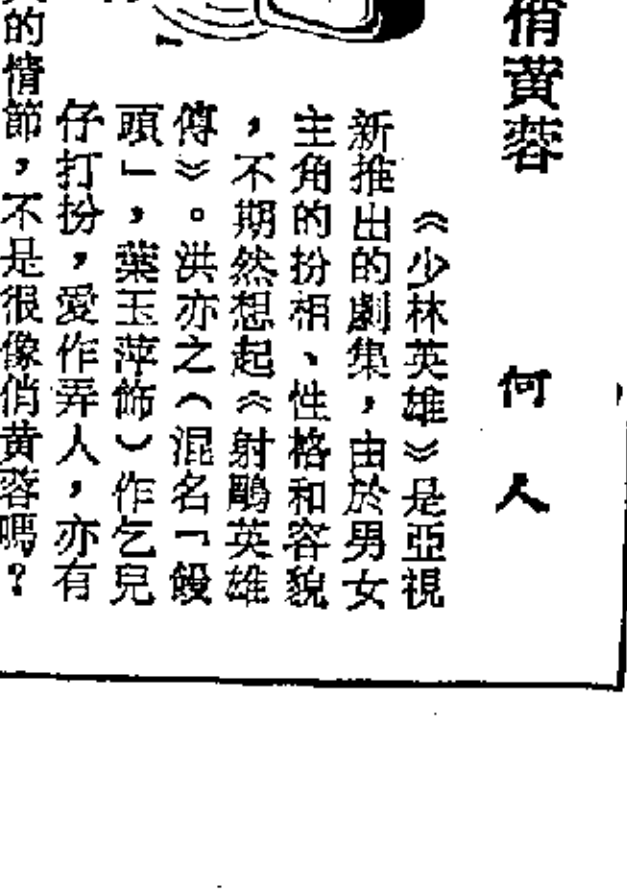 俏黃蓉
何人
《少林英雄》是亞視
新推出的劇集，由於男女
主角的扮相、性格和容貌
，不期然想起《射鵰英雄
傳》。洪亦之（混名「饅
頭」，葉玉萍飾）作乞兒
仔打扮，愛作弄人，亦有
的情節，不是很像俏黃蓉嗎？